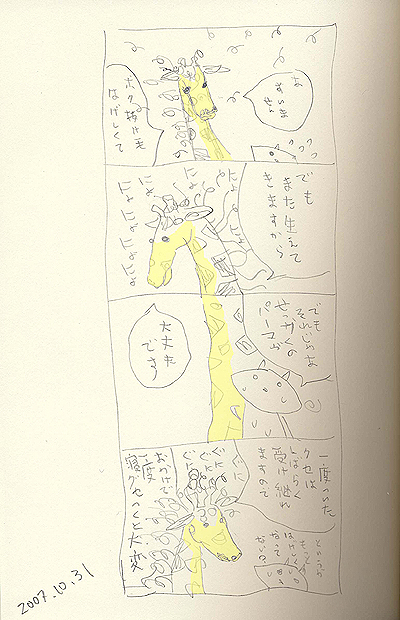 あ
すいま
せん
ボク抜け毛
はげしくて
でも
また生えて
きますから
にょにょ
にょにょ
にょにょにょにょ
でも
それじゃあ
せっかくの
パーマが
大丈夫
です
一度ついた
クセは
しばらく
受け継れ
ますので
というか
はげしく
なって
ない?
ぐに
ぐにぐに
おかげで
一度
寝グセつくと大変
2007.10.31